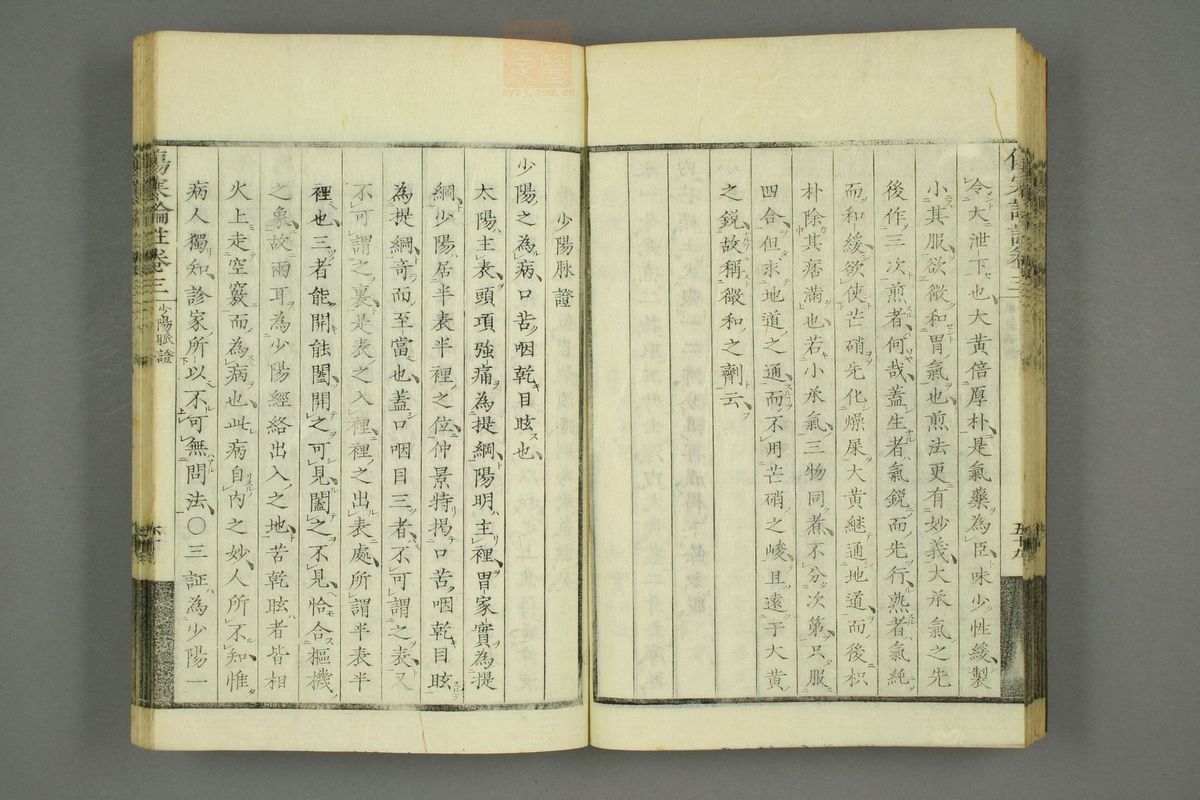 令大泄下也大黄倍厚朴是氣藥為臣味少性緩製
小其服欲微和胃氣也煎法更有妙義大承氣之先
後作三次煎者何哉蓋生者氣銳而先行熟者氣純
而和緩欲使芒硝先化燥屎大黄継通地道而後枳
朴除其痞滿也若小承氣三物同煮不分次第只服
四合但求地道之通而不用芒硝之峻且遠于大黄
之鋭故稱微和之劑云
少陽脉證
少陽之為病口苦咽乾目眩也
太陽主表頭項強痛為提綱陽明主裡胃家實為提
綱少陽居半表半裡之位仲景特掲口苦咽乾目眩
為提綱竒而至當也蓋口咽目三者不可謂之表又
不可謂之裏是表之入裡裡之出表處所謂半表半
裡也三者能開能闔開之可見闔之不見恰合樞機
之象故兩耳為少陽經絡出入之地苦乾眩者皆相
火上走空竅而為病也此病自内之妙人所不知惟
病人獨知診家所以不可無問法〇三証為少陽一
傷寒論註卷三
少陽脈證
五十九
zysj.com.cn